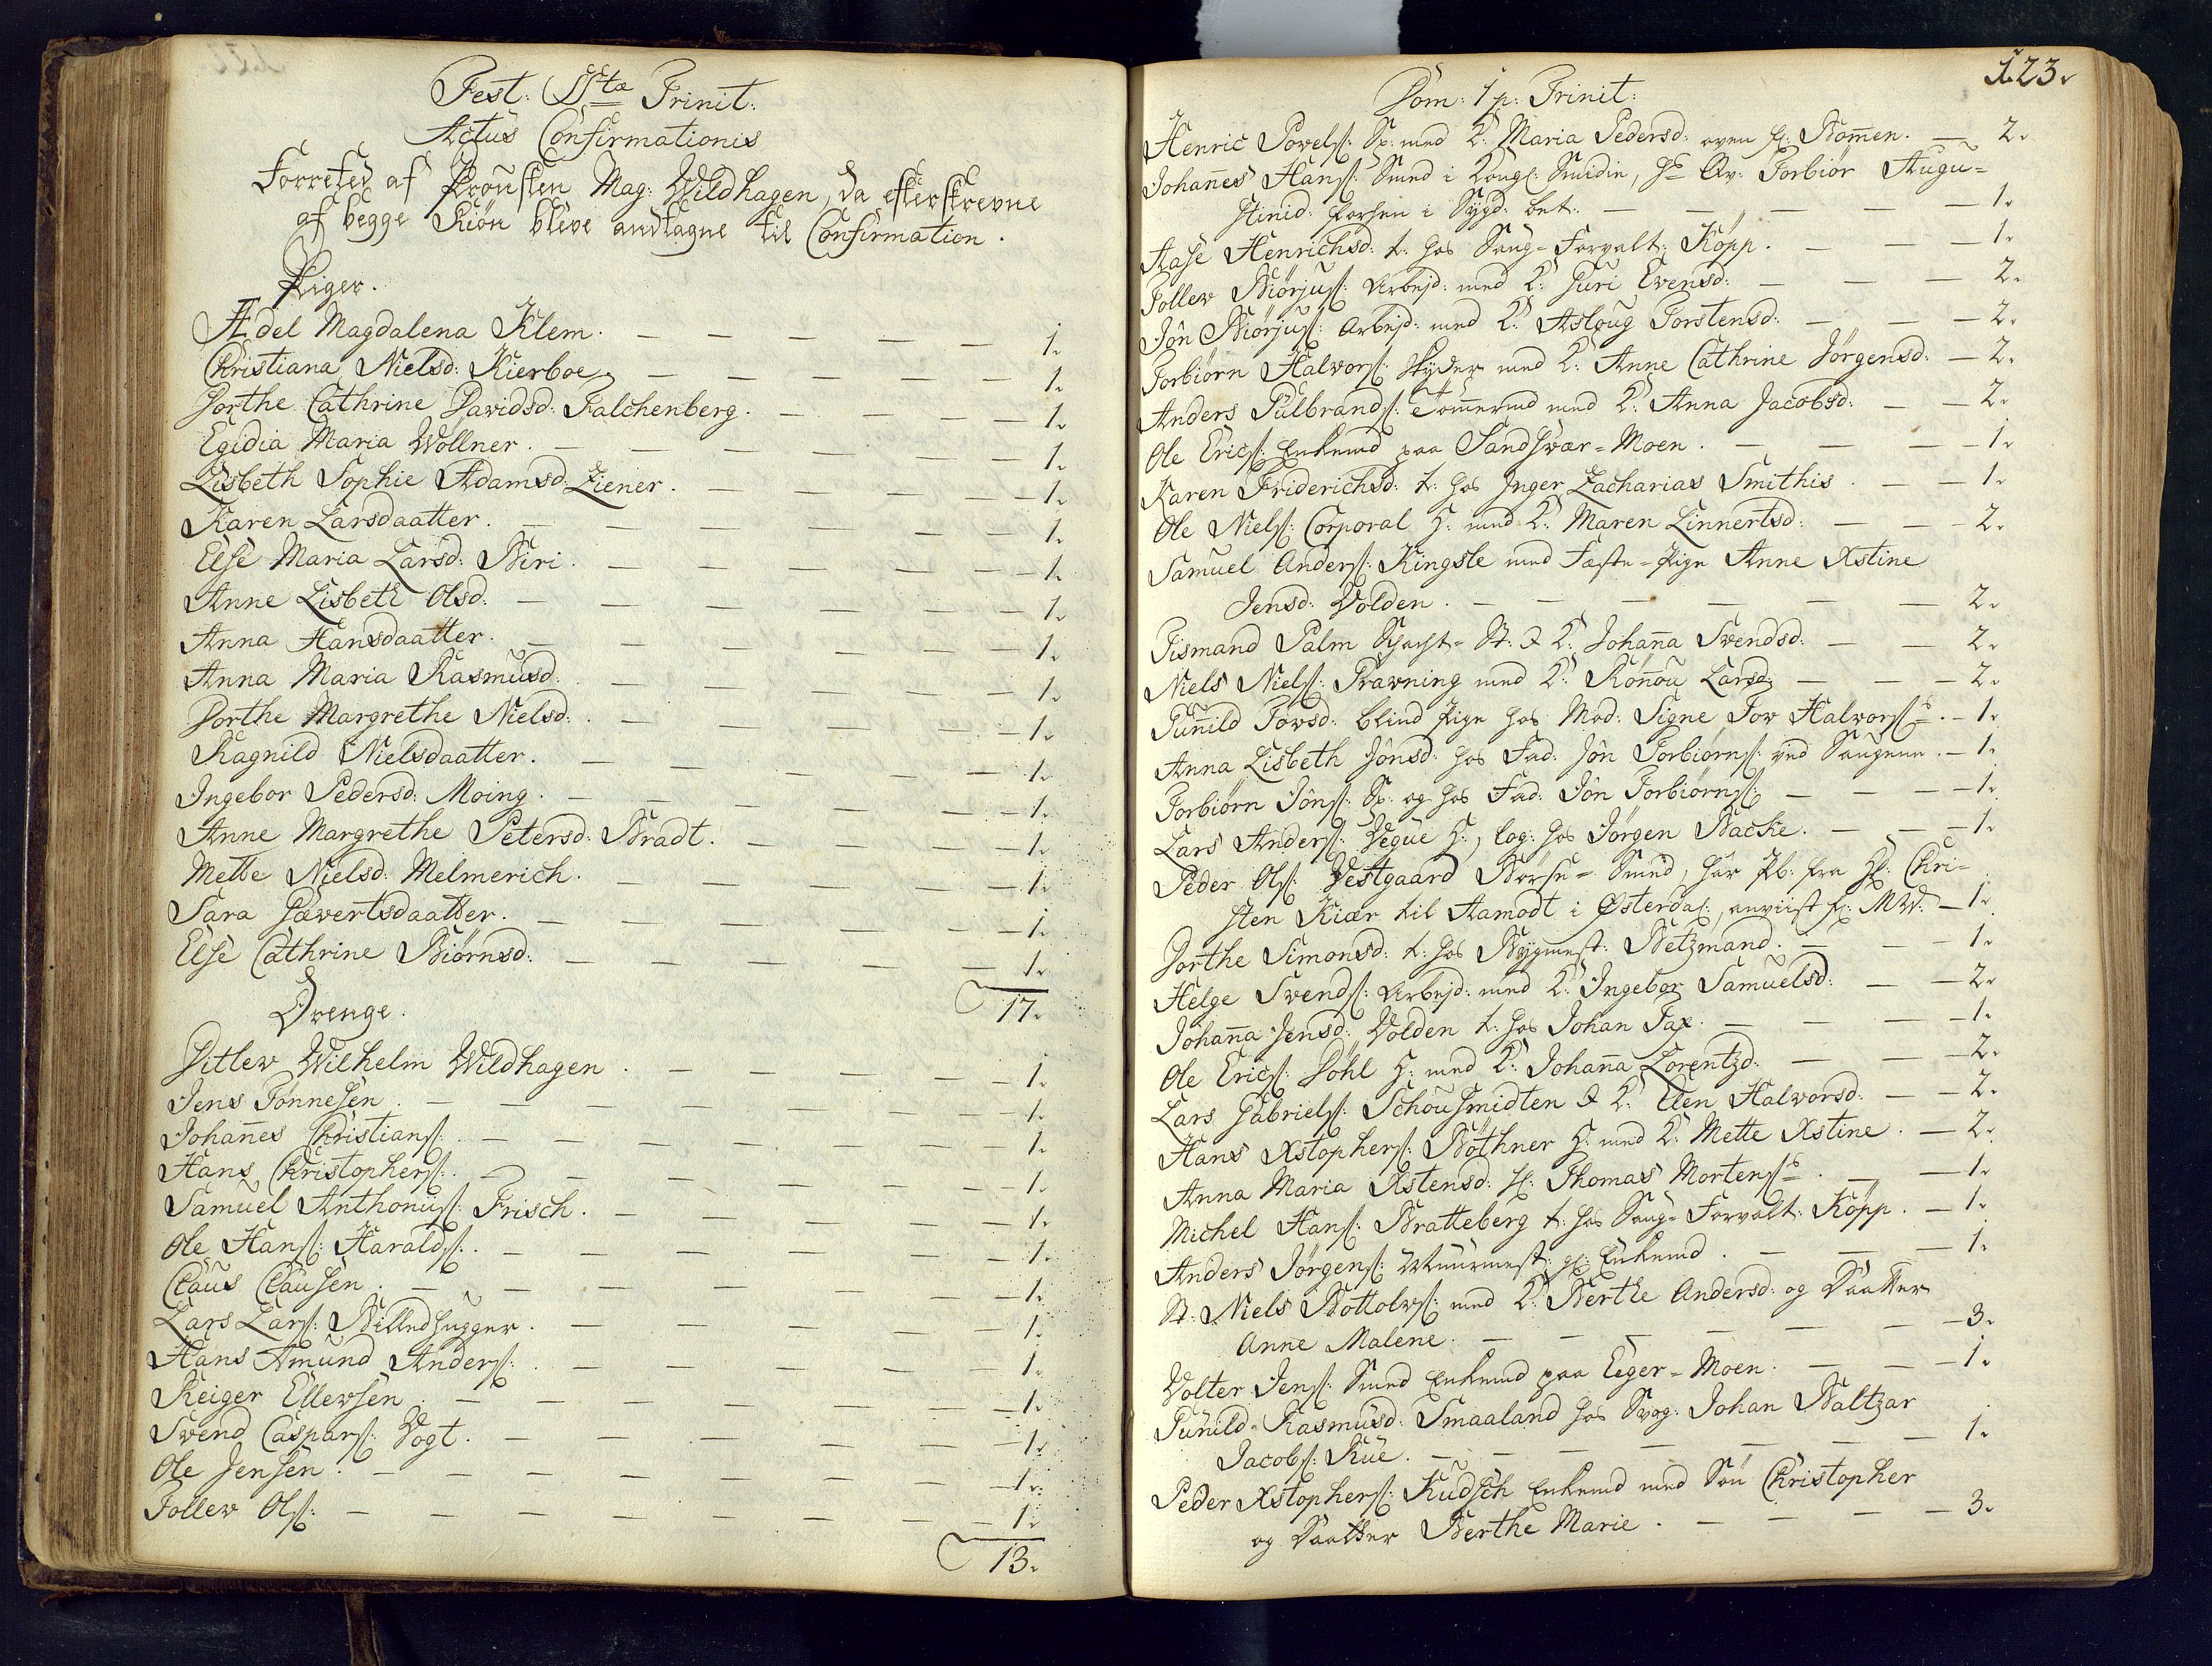 Fest: SStæ Trinit:
Actus Confirmationis
Forretted af Prousten Mag: Wildhagen, da efterskrevne
af begge Kiøn bleve andtagne til Confirmation.
Piger.
Adel Magdalena Klem. — 1.
Christiana Nielsd: Kierboe. — 1.
Dorthe Cathrine Davidsd: Falchenberg. — 1.
Egidia Maria Wøllner. — 1.
Lisbeth Sophie Adamsd: Ziener. — 1.
Karen Larsdaatter. — 1.
Else Maria Larsd: Biri. — 1.
Anne Lisbeth Olsd: — 1.
Anna Hansdaatter. — 1.
Anna Maria Rasmusd: — 1.
Dorthe Margrethe Nielsd: — 1.
Ragnild Nielsdaatter. — 1.
Ingebor Pedersd: Moing. — 1.
Anne Margrethe Petersd: Bradt. — 1.
Mette Nielsd: Melmerich. — 1.
Sara Gævertsdaatter. — 1.
Else Cathrine Biørnsd: — 1.
17.
Drenge.
Ditlev Wilhelm Wildhagen. — 1.
Jens Tønnesen. — 1.
Johanes Christians: — 1.
Hans Christophers: — 1.
Samuel Anthonius: Frisch. — 1.
Ole Hans: Haralds: — 1.
Claus Clausen. — 1.
Lars Lars: Billedhugger. — 1.
Hans Amund Anders: — 1.
Reiger Ellevsen. — 1.
Svend Caspars: Vogt. — 1.
Ole Jensen. — 1.
Tollev Ols: — 1.
13.
123.
Dom: 1 p: Trinit:
Henric Povels: Sp: med K: Maria Pedersd: oven f: Bomen. — 2.
Johanes Hans: Smed i Kongs: Smidie, hs Qv: Torbiør Augu-
stinid: forhen i Sygd: bet: — 1.
Aase Henrichsd: t: hos Saug-Forvalt: Köpp. — 1.
Tollev Biørjus: Arbejd: med K: Guri Evensd: — 2.
Jôn Biørjus: Arbejd: med K: Asloug Torstensd: — 2.
Torbiørn Halvors: Skyder med K: Anne Cathrine Jørgensd: — 2.
Anders Gulbrands: Tømermd med K: Anna Jacobsd: — 2.
Ole Erics: Enkemd paa Sandsvær-Moen. — 1.
Karen Friderichsd: t: hos Inger Zacharias Smithis. — 1.
Ole Niels: Corporal H: med K: Maren Linnertsd: — 2.
Samuel Anders: Kingsle med Fæste-Pige Anne Xstine
Jensd: Volden. — 2.
Tismand Palm Schacht-St: & K: Johana Svendsd: — 2.
Niels Niels: Bavning med K: Rönou Larsd: — 2.
Gunild Tovsd: blind Pige hos Mod: Signe Tov Halvors:s. — 1.
Anna Lisbeth Jônsd: hos Fad: Jôn Torbiørns: ved Saugene. — 1.
Torbiørn Jôns: Sp: og hos Fad: Jôn Torbiørns: — 1.
Lars Anders: Vegue H:, log: hos Jørgen Backe. — 1.
Peder Ols: Vestgaard Børse-Smid, har Pb: fra Hr: Chri-
sten Kiær til Aamodt i Østerda:, anviist fr: M: W: — 1.
Dorthe Simonsd: t: hos Bygmest: Betzmand. — 1.
Helge Svends: Arbejd: med K: Ingebor Samuelsd: — 2.
Johana Jensd: Volden t: hos Johan Fax. — 1.
Ole Erics: Döhl H: med K: Johana Lorentzd: — 2.
Lars Gabriels: Schousmidten & K: Elen Halvorsd: — 2.
Hans Xstophers: Böthner H: med K: Mette Xstine. — 2.
Anna Maria Xstensd: Sl: Thomas Mortens:s. — 1.
Michel Hans: Bratteberg t: hos Saug-Forvalt: Köpp. — 1.
Anders Jørgens: Muurmest: gl: Enkemd. — 1.
St: Niels Bottolvs: med K: Berthe Andersd: og Daatter
Anne Malene. — 3.
Volter Jens: Smed Enkemd paa Eeger-Moen. — 1.
Gunild Rasmusd: Smaaland hos Svog: Johan Baltzar
Jacobs: Rue. — 1.
Peder Xstophers: Kudsch Enkemd med Søn Christopher
og Daatter Berthe Marie. — 3.